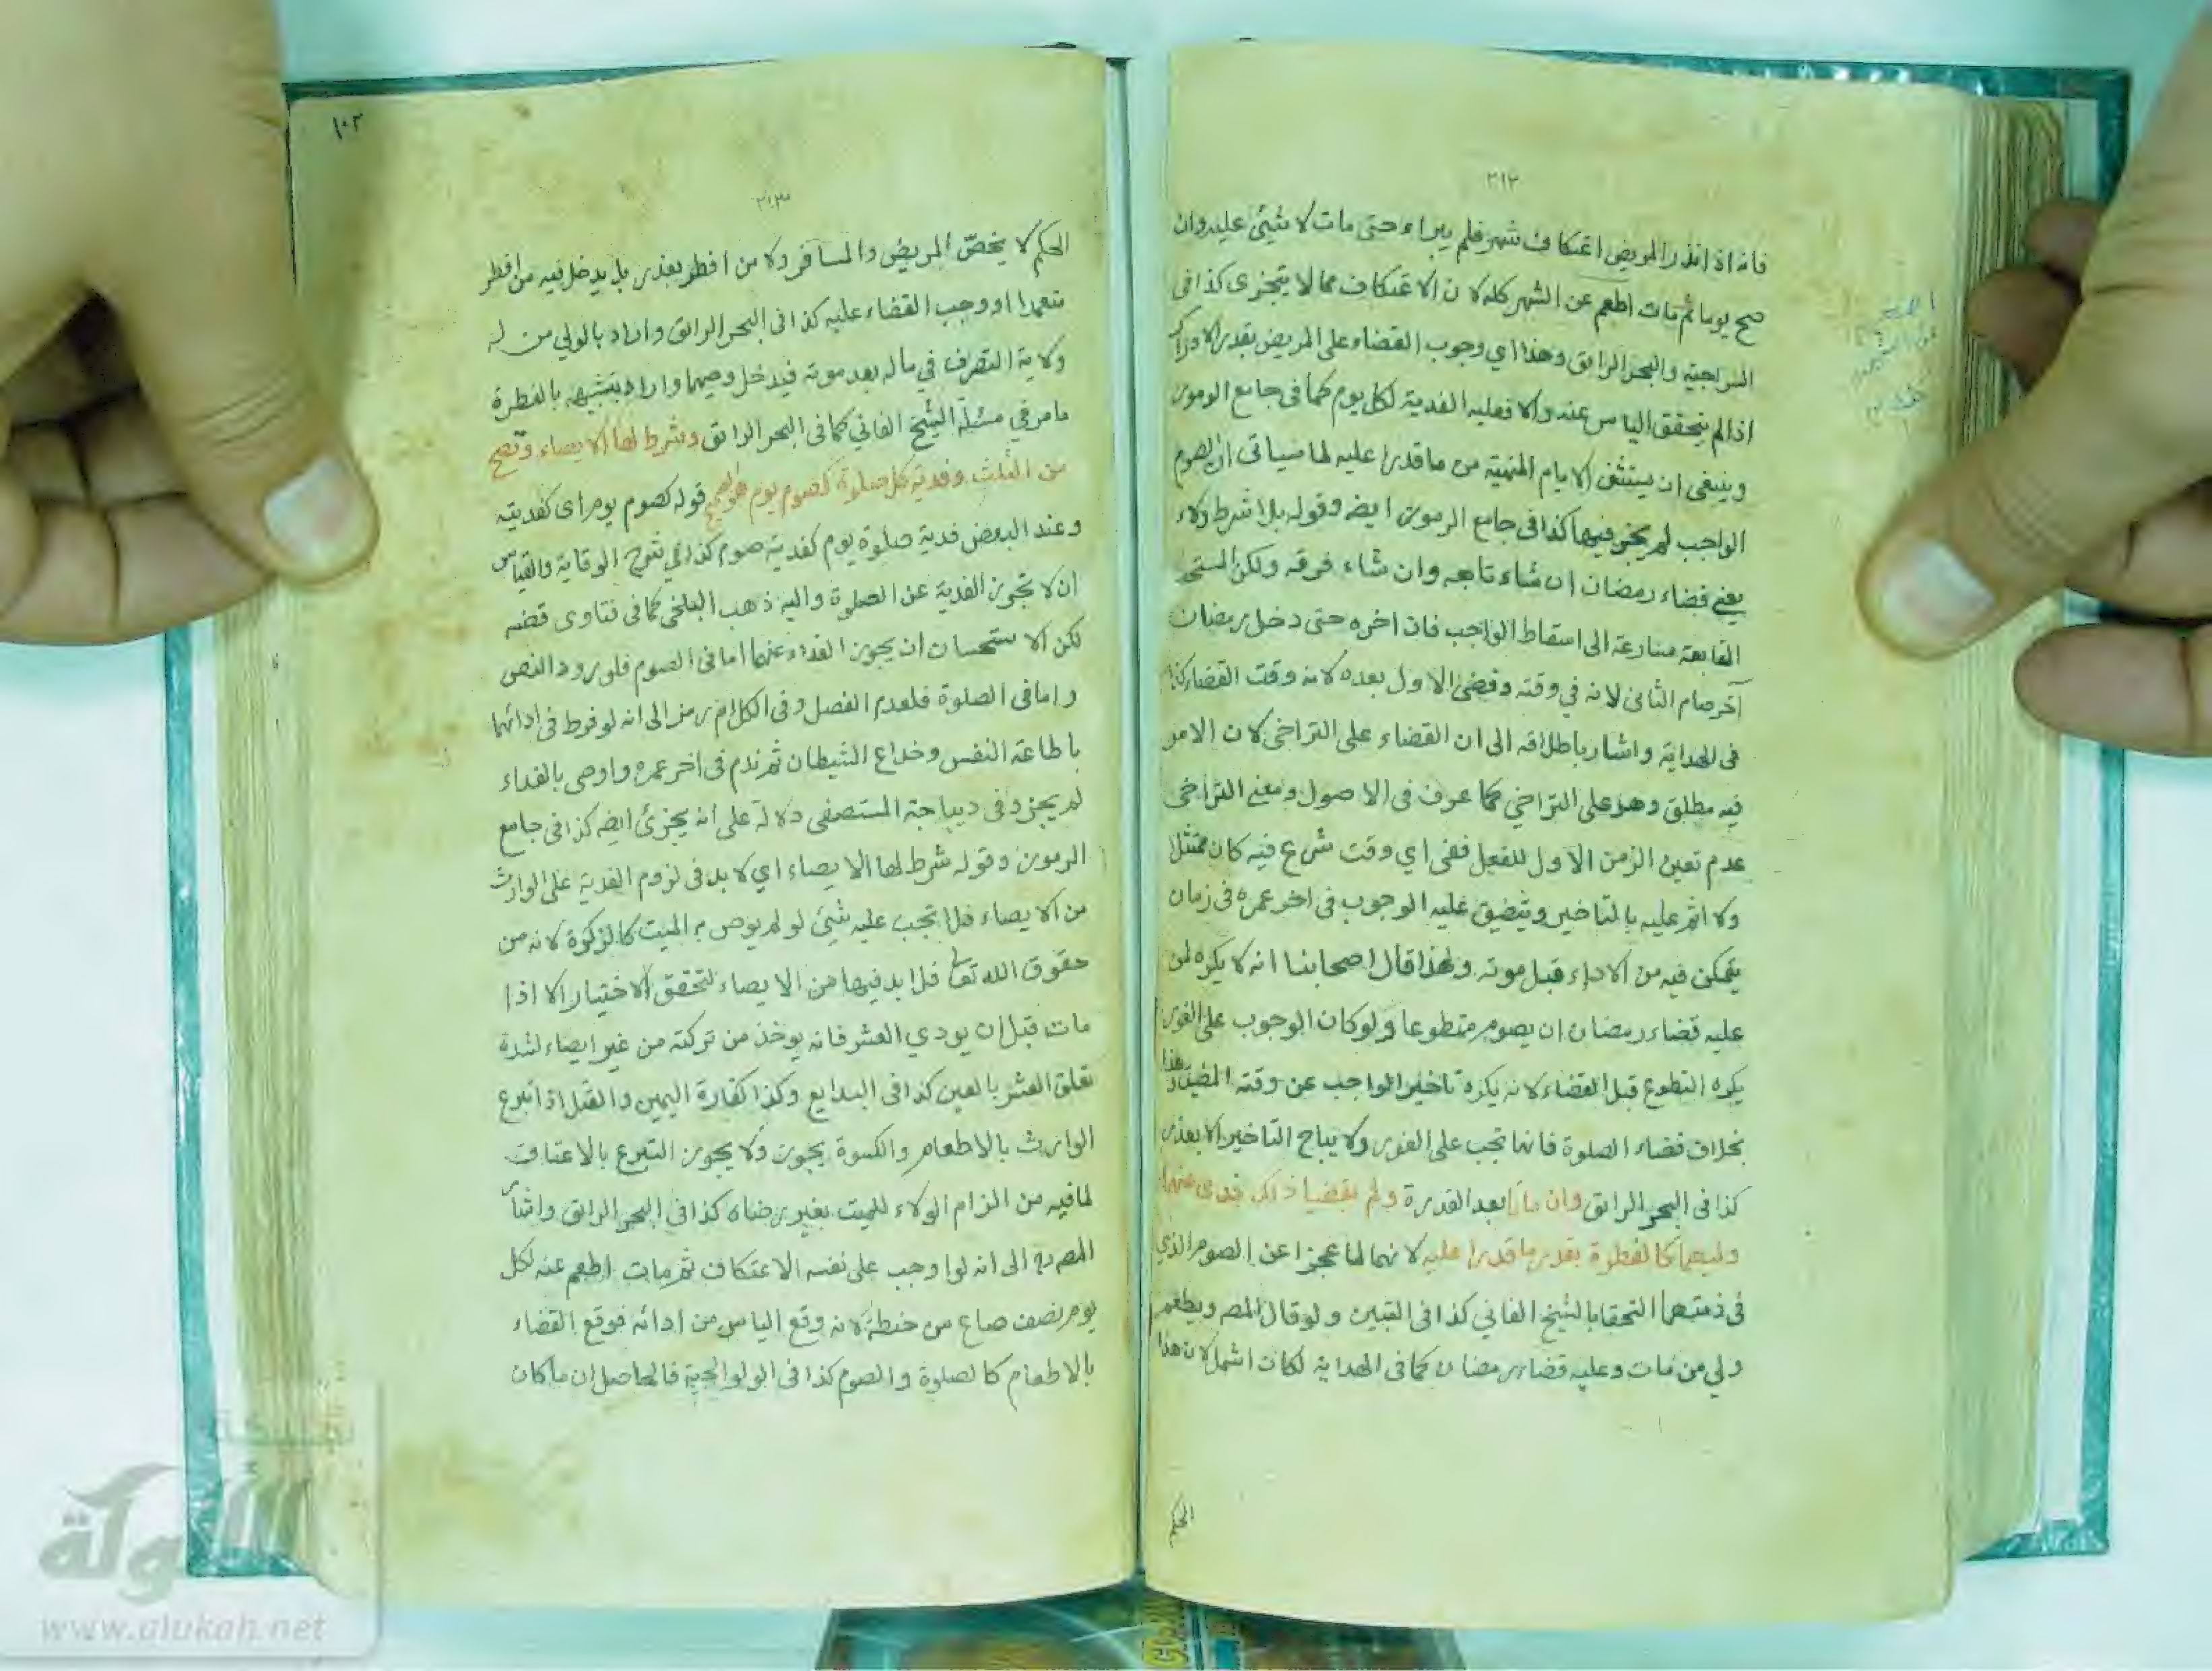 ٢١٢
فانه اذا نذر المريض اعتكاف شهر فلم يبراء حتى مات لا شيئ عليه وان
صح يوما ثم مات اطعم عن الشهر كله لان الاعتكاف مما لا يتجزى كذا في
السراجيه والبحر الرايق وهذا اي وجوب القضاء على المريض بقدر الادراك
اذا لم يتحقق الياس عنده والا فعليه الفدية لكل يوم كما فى جامع الرموز
وينبغى ان يستثنى الايام المنهية من ما قدرا عليه لما سياتى ان الصوم
الواجب لم يجز فيها كذا فى جامع الرموز ايضه وقوله بلا شرط ولاء
يعني قضاء رمضان ان شاء تابعه وان شاء فرقه ولكن المستحب
المتابعة مسارعة الى اسقاط الواجب فان اخره حتى دخل رمضان
آخر صام الثانى لانه في وقته وقضى الاول بعده لانه وقت القضاء كذا
فى الهداية واشار باطلاقه الى ان القضاء على التراخى لان الامر
فيه مطلق وهو على التراخي كما عرف فى الاصول ومعنى التراخى
عدم تعين الزمن الاول للفعل ففى اي وقت شرع فيه كان ممتثلا
ولا اثم عليه بالتاخير ويتضيق عليه الوجوب فى اخر عمره فى زمان
يتمكن فيه من الاداء قبل موته ولهذا قال اصحابنا انه لا يكره لمن
عليه قضاء رمضان ان يصوم متطوعا ولو كان الوجوب على الفور
يكره التطوع قبل القضاء لانه يكره تاخير الواجب عن وقته المضيق وهذا
بخلاف قضاء الصلوة فانها تجب على الفور ولا يباح التاخير الا بعذر
كذا فى البحر الرائق وان ماتا بعد القدرة ولم يقضيا ذلك فدى عنهما
وليهما كالفطرة بقدر ما قدرا عليه لانهما لما عجزا عن الصوم الذي
فى ذمتهما التحقا بالشيخ الفاني كذا فى التبين ولو قال المصه ويطعم
ولي من مات وعليه قضاء رمضان كما فى الهداية لكان اشمل لان هذا
الحكم
١٠٢
٢١٣
الحكم لا يخصّ المريض والمسافر ولا من افطر بعذر بل يدخل فيه من افطر
متعمدا او وجب القضاء عليه كذا فى البحر الرائق واراد بالولي من له
ولاية التصرف في ماله بعد موته فيدخل وصيهما واراد بتشبيهه بالفطرة
ما مر في مسئلة الشيخ الفاني كما فى البحر الرائق وشرط لها الايصاء وتصح
من الثلث وفدية كل صلوة كصوم يوم هو الصحيح قوله كصوم يوم اى كفديته
وعند البعض فدية صلوة يوم كفدية صوم كذا في شرح الوقاية والقياس
ان لا تجوز الفدية عن الصلوة واليه ذهب البلخى كما فى فتاوى قضه
لكن الاستحسان ان يجوز الفداء عنهما اما فى الصوم فلورود النص
واما فى الصلوة فلعدم الفصل وفى الكلام رمز الى انه لو فرط فى ادائها
باطاعة النفس وخداع الشيطان ثم ندم فى اخر عمره واوصى بالفداء
لم يجز وفى ديباجة المستصفى دلالة على انه يجزئ ايضه كذا فى جامع
الرموز وقوله شرط لها الايصاء اي لا بد فى لزوم الفدية على الوارث
من الايصاء فلا تجب عليه شيئ لو لم يوص به الميت كالزكوة لانه من
حقوق الله تعا فلا بد فيها من الايصاء لتحقق الاختيار الا اذا
مات قبل ان يودي العشر فانه يوخذ من تركته من غير ايصاء لشدة
تعلق العشر بالعين كذا فى البدايع وكذا كفارة اليمين والقتل اذا تبرع
الوارث بالاطعام والكسوة يجوز ولا يجوز التبرع بالاعتاق
لما فيه من الزام الولاء للميت بغير رضاه كذا فى البحر الرائق واشار
المصه الى انه لو اوجب على نفسه الاعتكاف ثم مات اطعم عنه لكل
يوم نصف صاع من حنطة لانه وقع الياس من ادائه فوقع القضاء
بالاطعام كالصلوة والصوم كذا فى الولوالجية فالحاصل ان ما كان
الألوكة
www.alukah.net